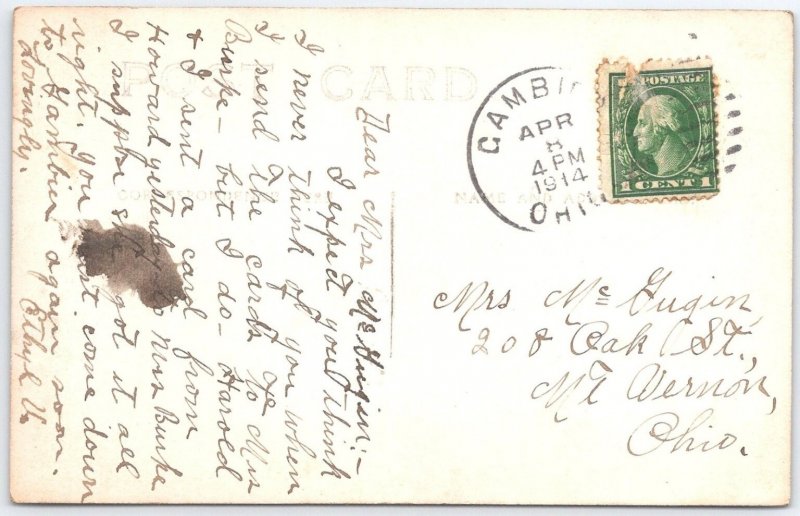 POST CARD
CORRESPONDENCE
NAME AND
Dear Mrs McGugin:-
I expect you think
I never think of you when
I send the cards to Mrs
Burke - but I do - Harold
& I sent a card from
Howard yesterday to Mrs Burke
I suppose she got it all
right. You must come down
to Gambier again soon.
Lovingly, Ethyl V.
GAMBI
APR
8
4 PM
1914
OHIO
U.S. POSTAGE
1 CENT 1
Mrs McGugin,
208 Oak St.,
Mt Vernon,
Ohio.